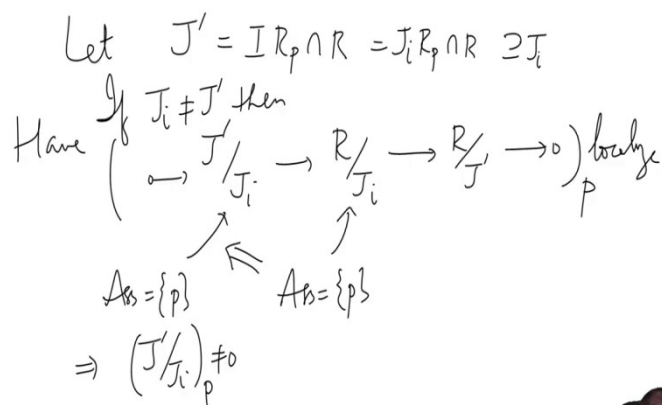 Let J' = I Rp ∩ R = Ji Rp ∩ R ⊇ Ji
If Ji ≠ J' then
Have ( 0 → J'/Ji → R/Ji → R/J' → 0 )p localize
Ass = {p} ⇐ Ass = {p}
⇒ (J'/Ji)p ≠ 0